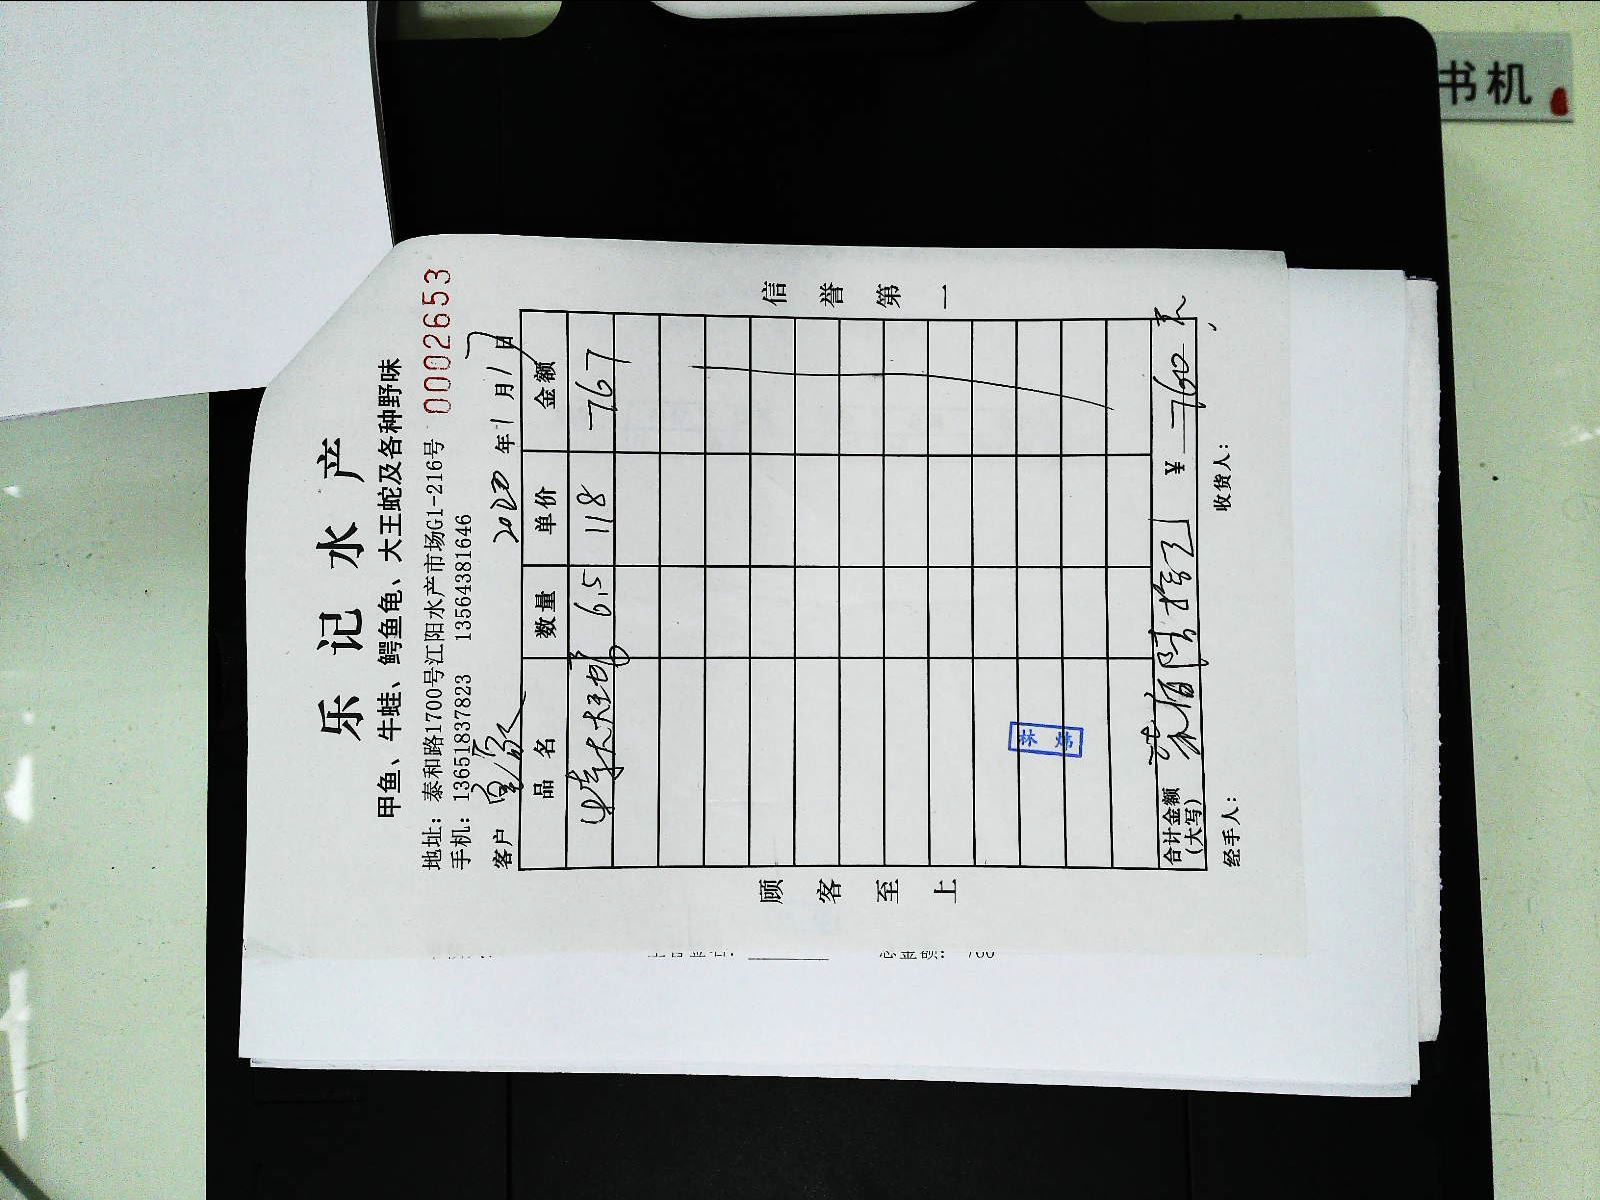 乐记水产
甲鱼、牛蛙、鳄鱼龟、大王蛇及各种野味
地址：泰和路1700号江阳水产市场G1-216号 0002653
手机：13651837823 13564381646
客户 2020年1月17日
品名 数量 单价 金额
6.5 118 767
顾客至上
信誉第一
林炜
合计金额(大写) 柒佰陆拾 ¥ 760元
经手人： 收货人：
总金额： 760
书机